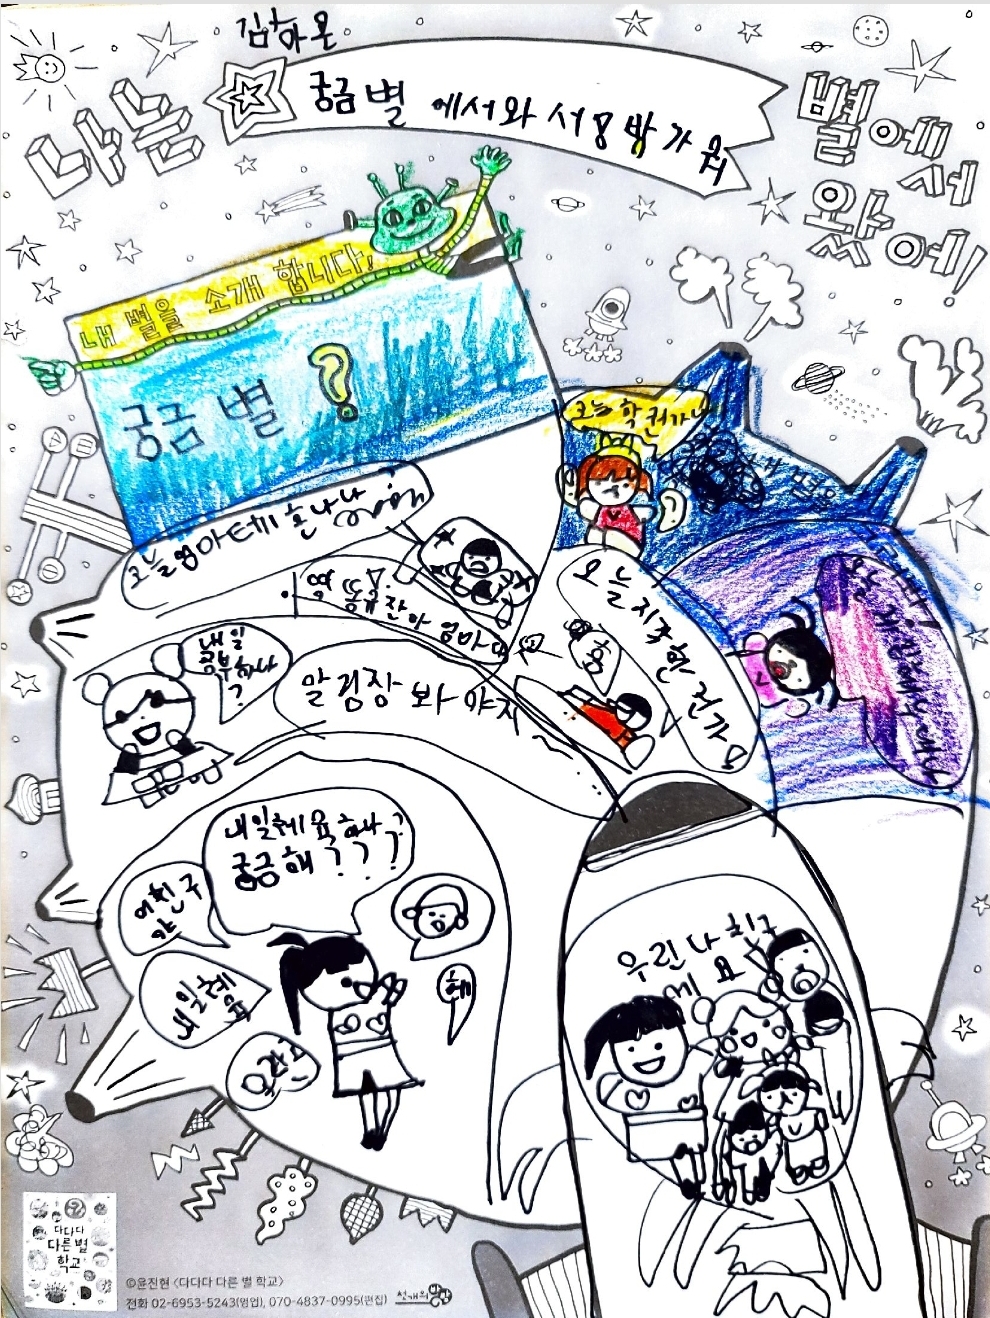 김하온
나는
궁금별 에서와 서 반가워
별에서
왔어!
내 별을 소개 합니다!
궁금별 ?
오늘 학원가나
오늘엄마테 혼나나
오늘지각한건가
흥
내일
공부하나
?
알림장 봐야지
내일체육하나?
궁금해???
내일체육
우린다친구
에요
다다다
다른 별
학교
©윤진현 〈다다다 다른 별 학교〉
전화 02-6953-5243(영업), 070-4837-0995(편집)
천개의바람